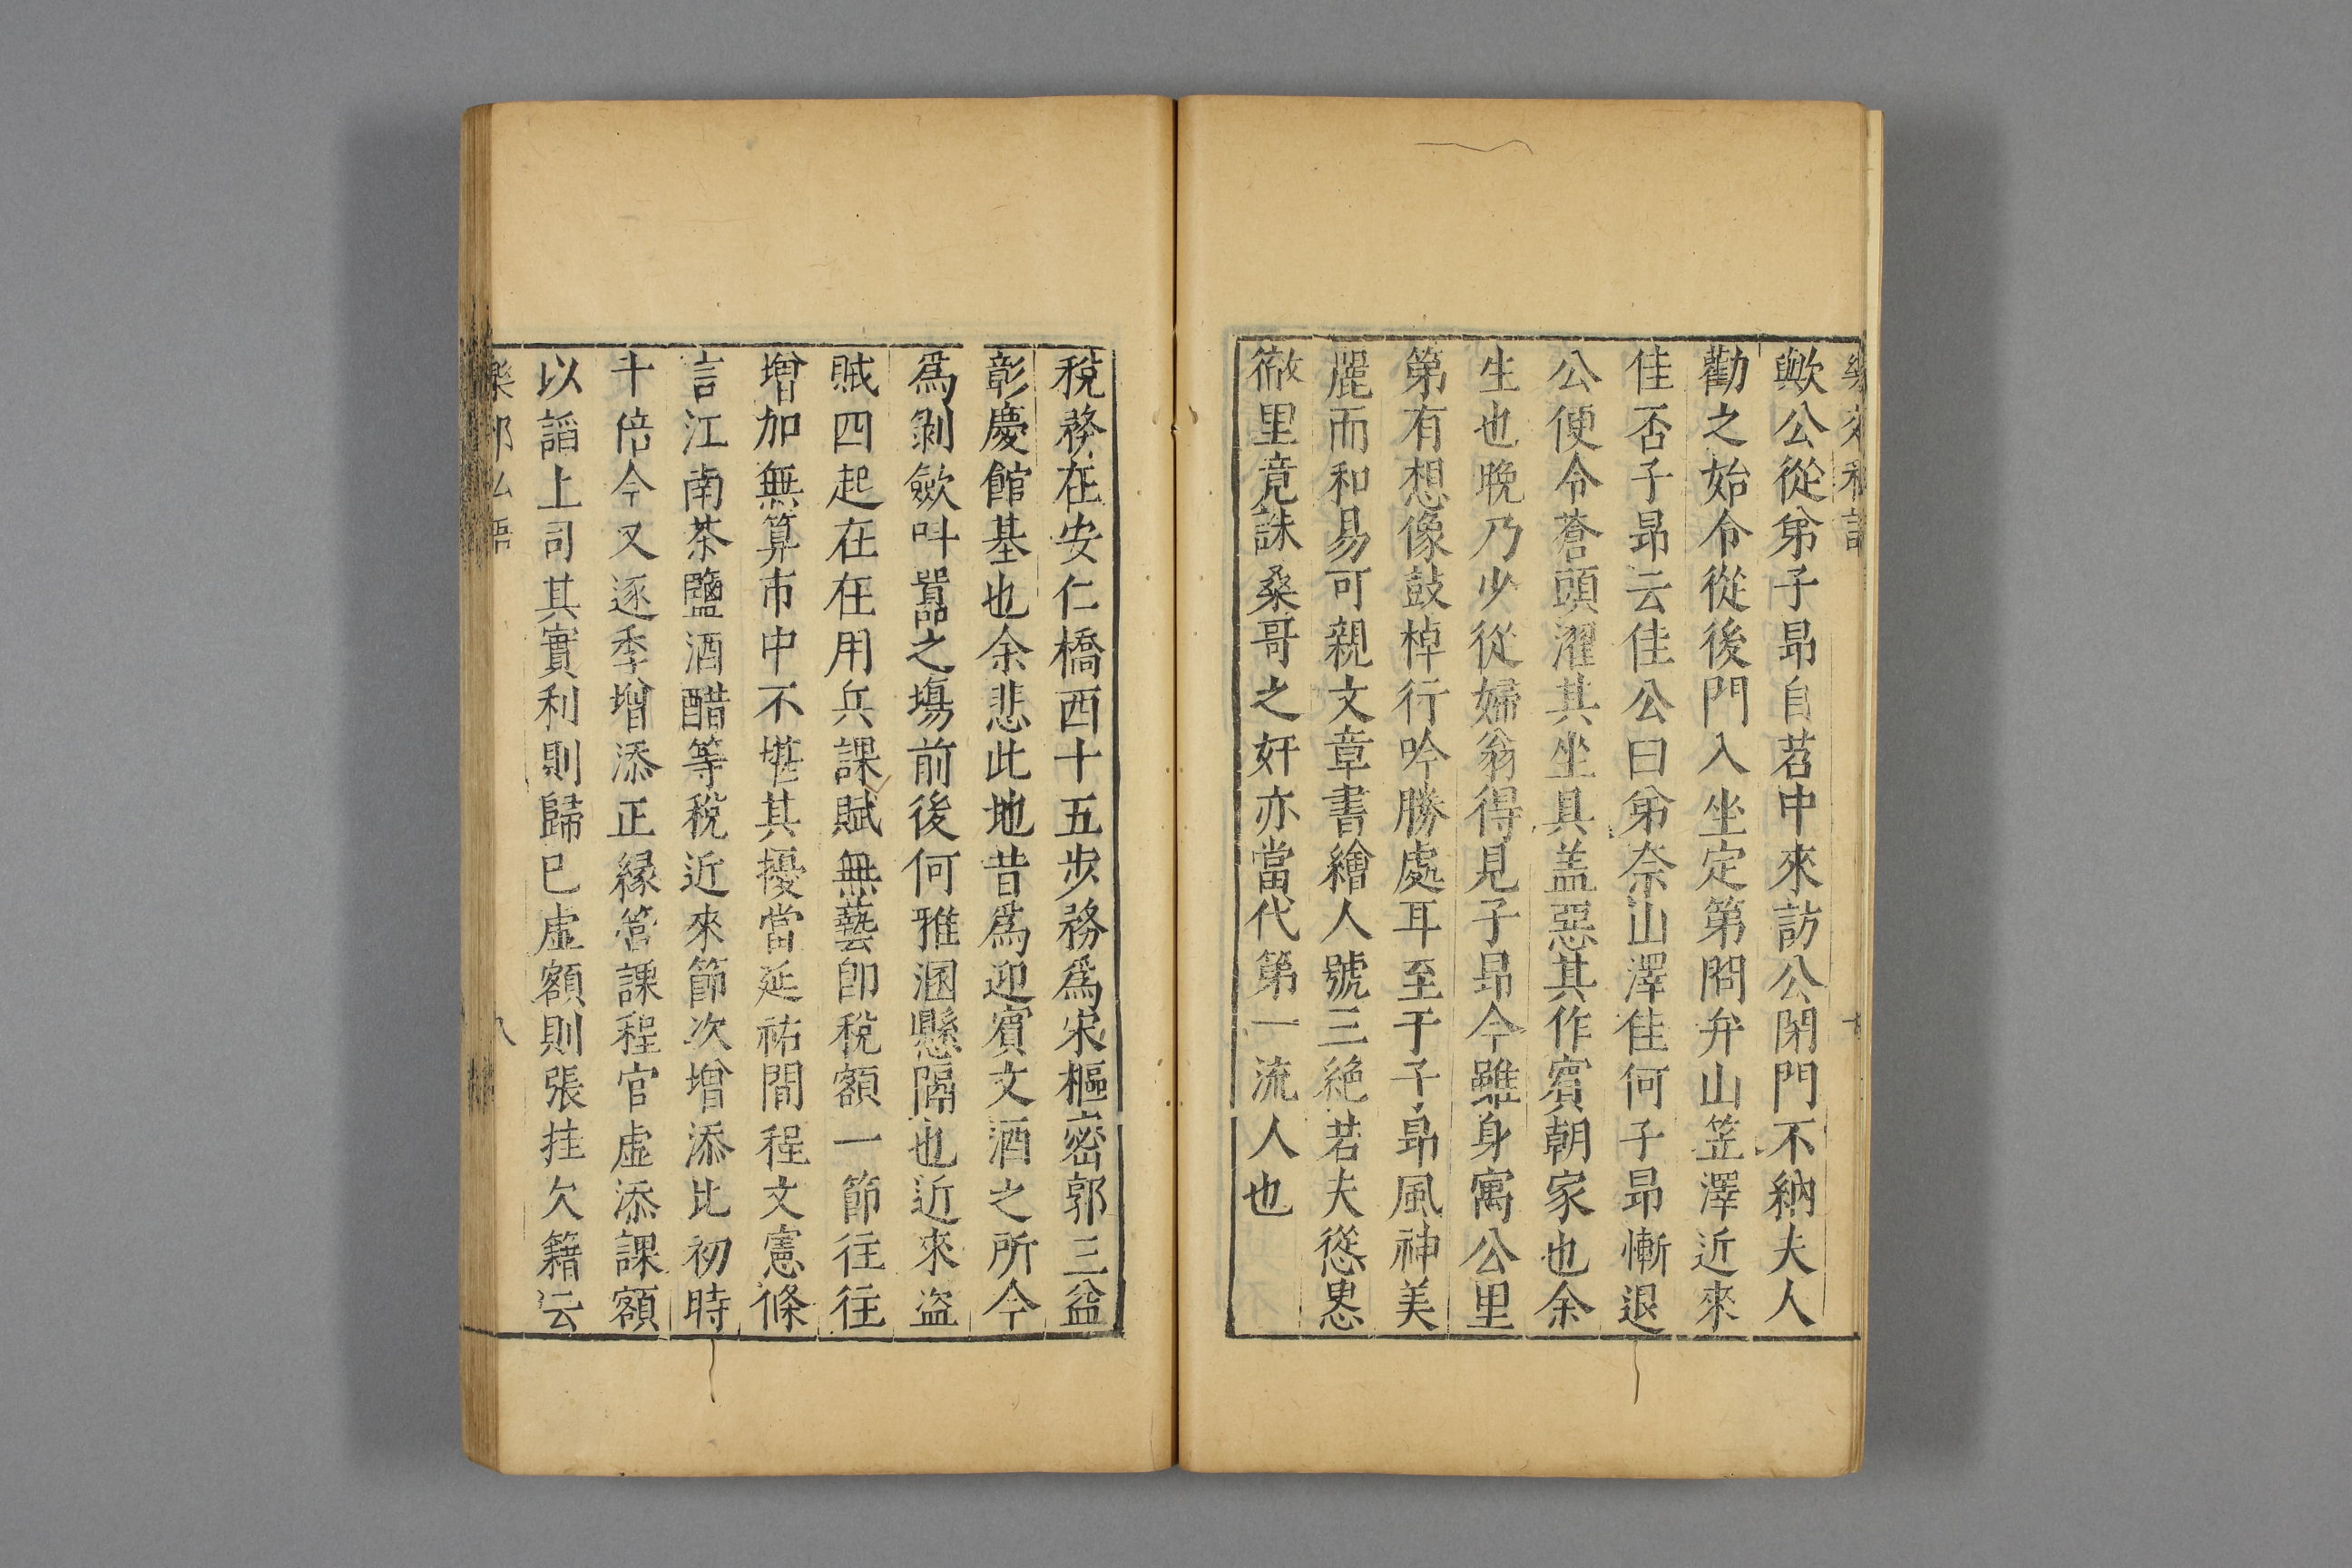 歟公從弟子昻自苕中來訪公閉門不納夫人
勸之始令從後門入坐定第問弁山笠澤近來
佳否子昻云佳公曰弟奈山澤佳何子昻慚退
公便令蒼頭濯其坐具盖惡其作賓朝家也余
生也晚乃少從婦翁得見子昻今雖身寓公里
第有想像鼓棹行吟勝處耳至于子昻風神美
麗而和易可親文章書繪人號三絶若夫慫恿
徹里竟誅桑哥之奸亦當代第一流人也
稅務在安仁橋西十五步務爲宋樞密郭三益
彰慶館基也余悲此地昔爲迎賓文酒之所今
爲剝歛呌囂之塲前後何雅溷懸隔也近來盜
賊四起在在用兵課賦無藝卽稅額一節往往
增加無算市中不堪其擾當延祐間程文憲條
言江南茶鹽酒醋等稅近來節次增添比初時
十倍今又逐季增添正縁管課程官虛添課額
以謟上司其實利則歸已虛額則張挂欠籍云
八